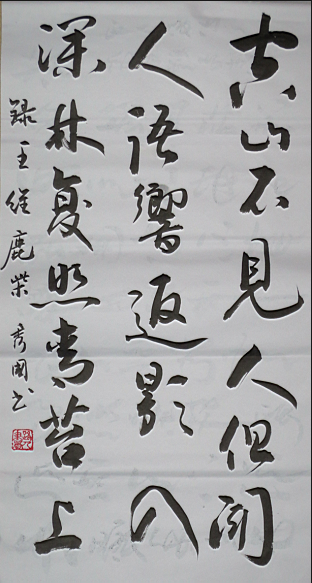 空山不見人但聞
人語響返影入
深林复照青苔上
録王维鹿柴 秀國书